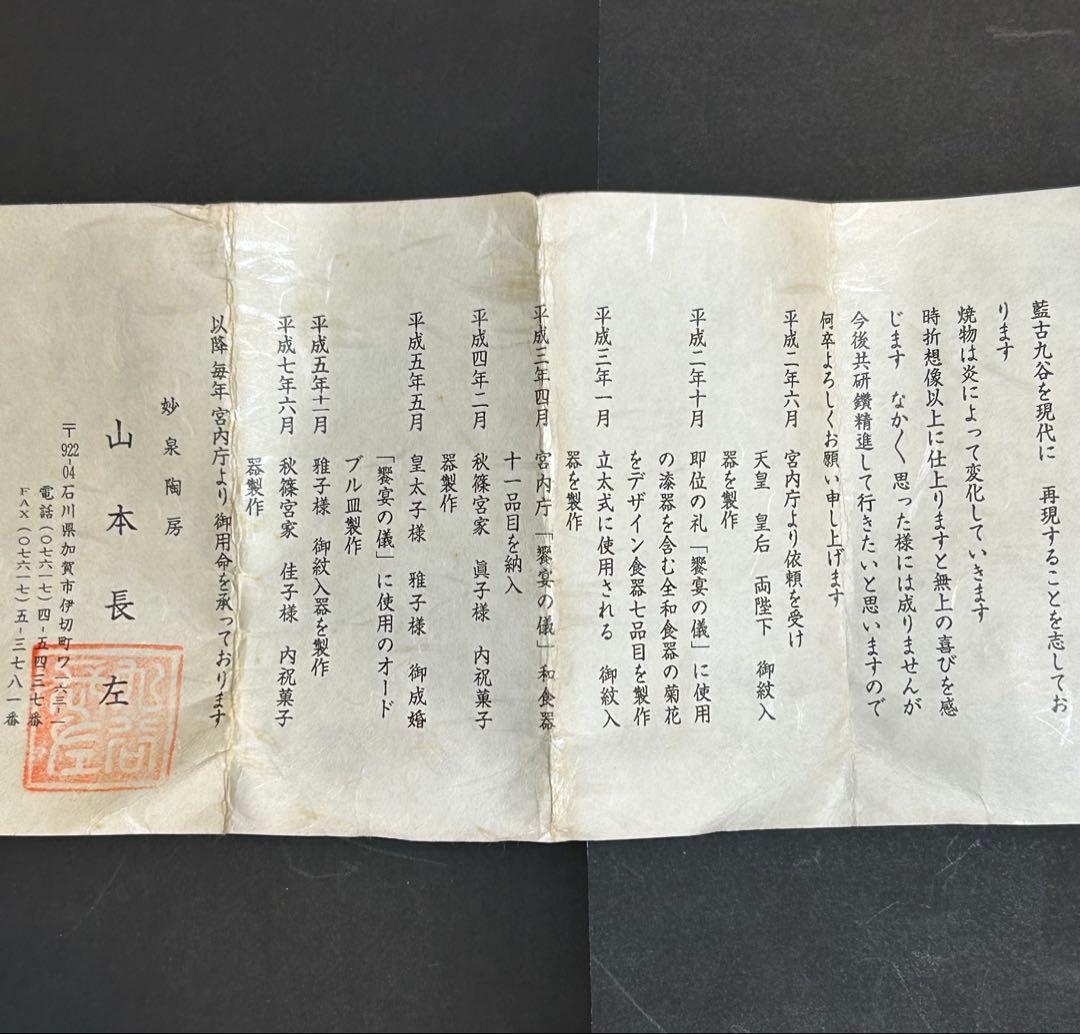 藍古九谷を現代に　再現することを志してお
ります
焼物は炎によって変化していきます
時折想像以上に仕上りますと無上の喜びを感
じます　なかく思った様には成りませんが
今後共研鑽精進して行きたいと思いますので
何卒よろしくお願い申し上げます
平成二年六月　宮内庁より依頼を受け
天皇　皇后　両陛下　御紋入
器を製作
平成二年十月　即位の礼「饗宴の儀」に使用
の漆器を含む全和食器の菊花
をデザイン食器七品目を製作
平成三年一月　立太式に使用される　御紋入
器を製作
平成三年四月　宮内庁「饗宴の儀」和食器
十一品目を納入
平成四年二月　秋篠宮家　眞子様　内祝菓子
器製作
平成五年五月　皇太子様　雅子様　御成婚
「饗宴の儀」に使用のオード
ブル皿製作
平成五年十一月　雅子様　御紋入器を製作
平成七年六月　秋篠宮家　佳子様　内祝菓子
器製作
以降毎年宮内庁より御用命を承っております
妙泉陶房
山本長左
〒922-04石川県加賀市伊切町ワ一六三-一
電話（〇七六一七）四-五四三七番
FAX（〇七六一七）五-三七八一番